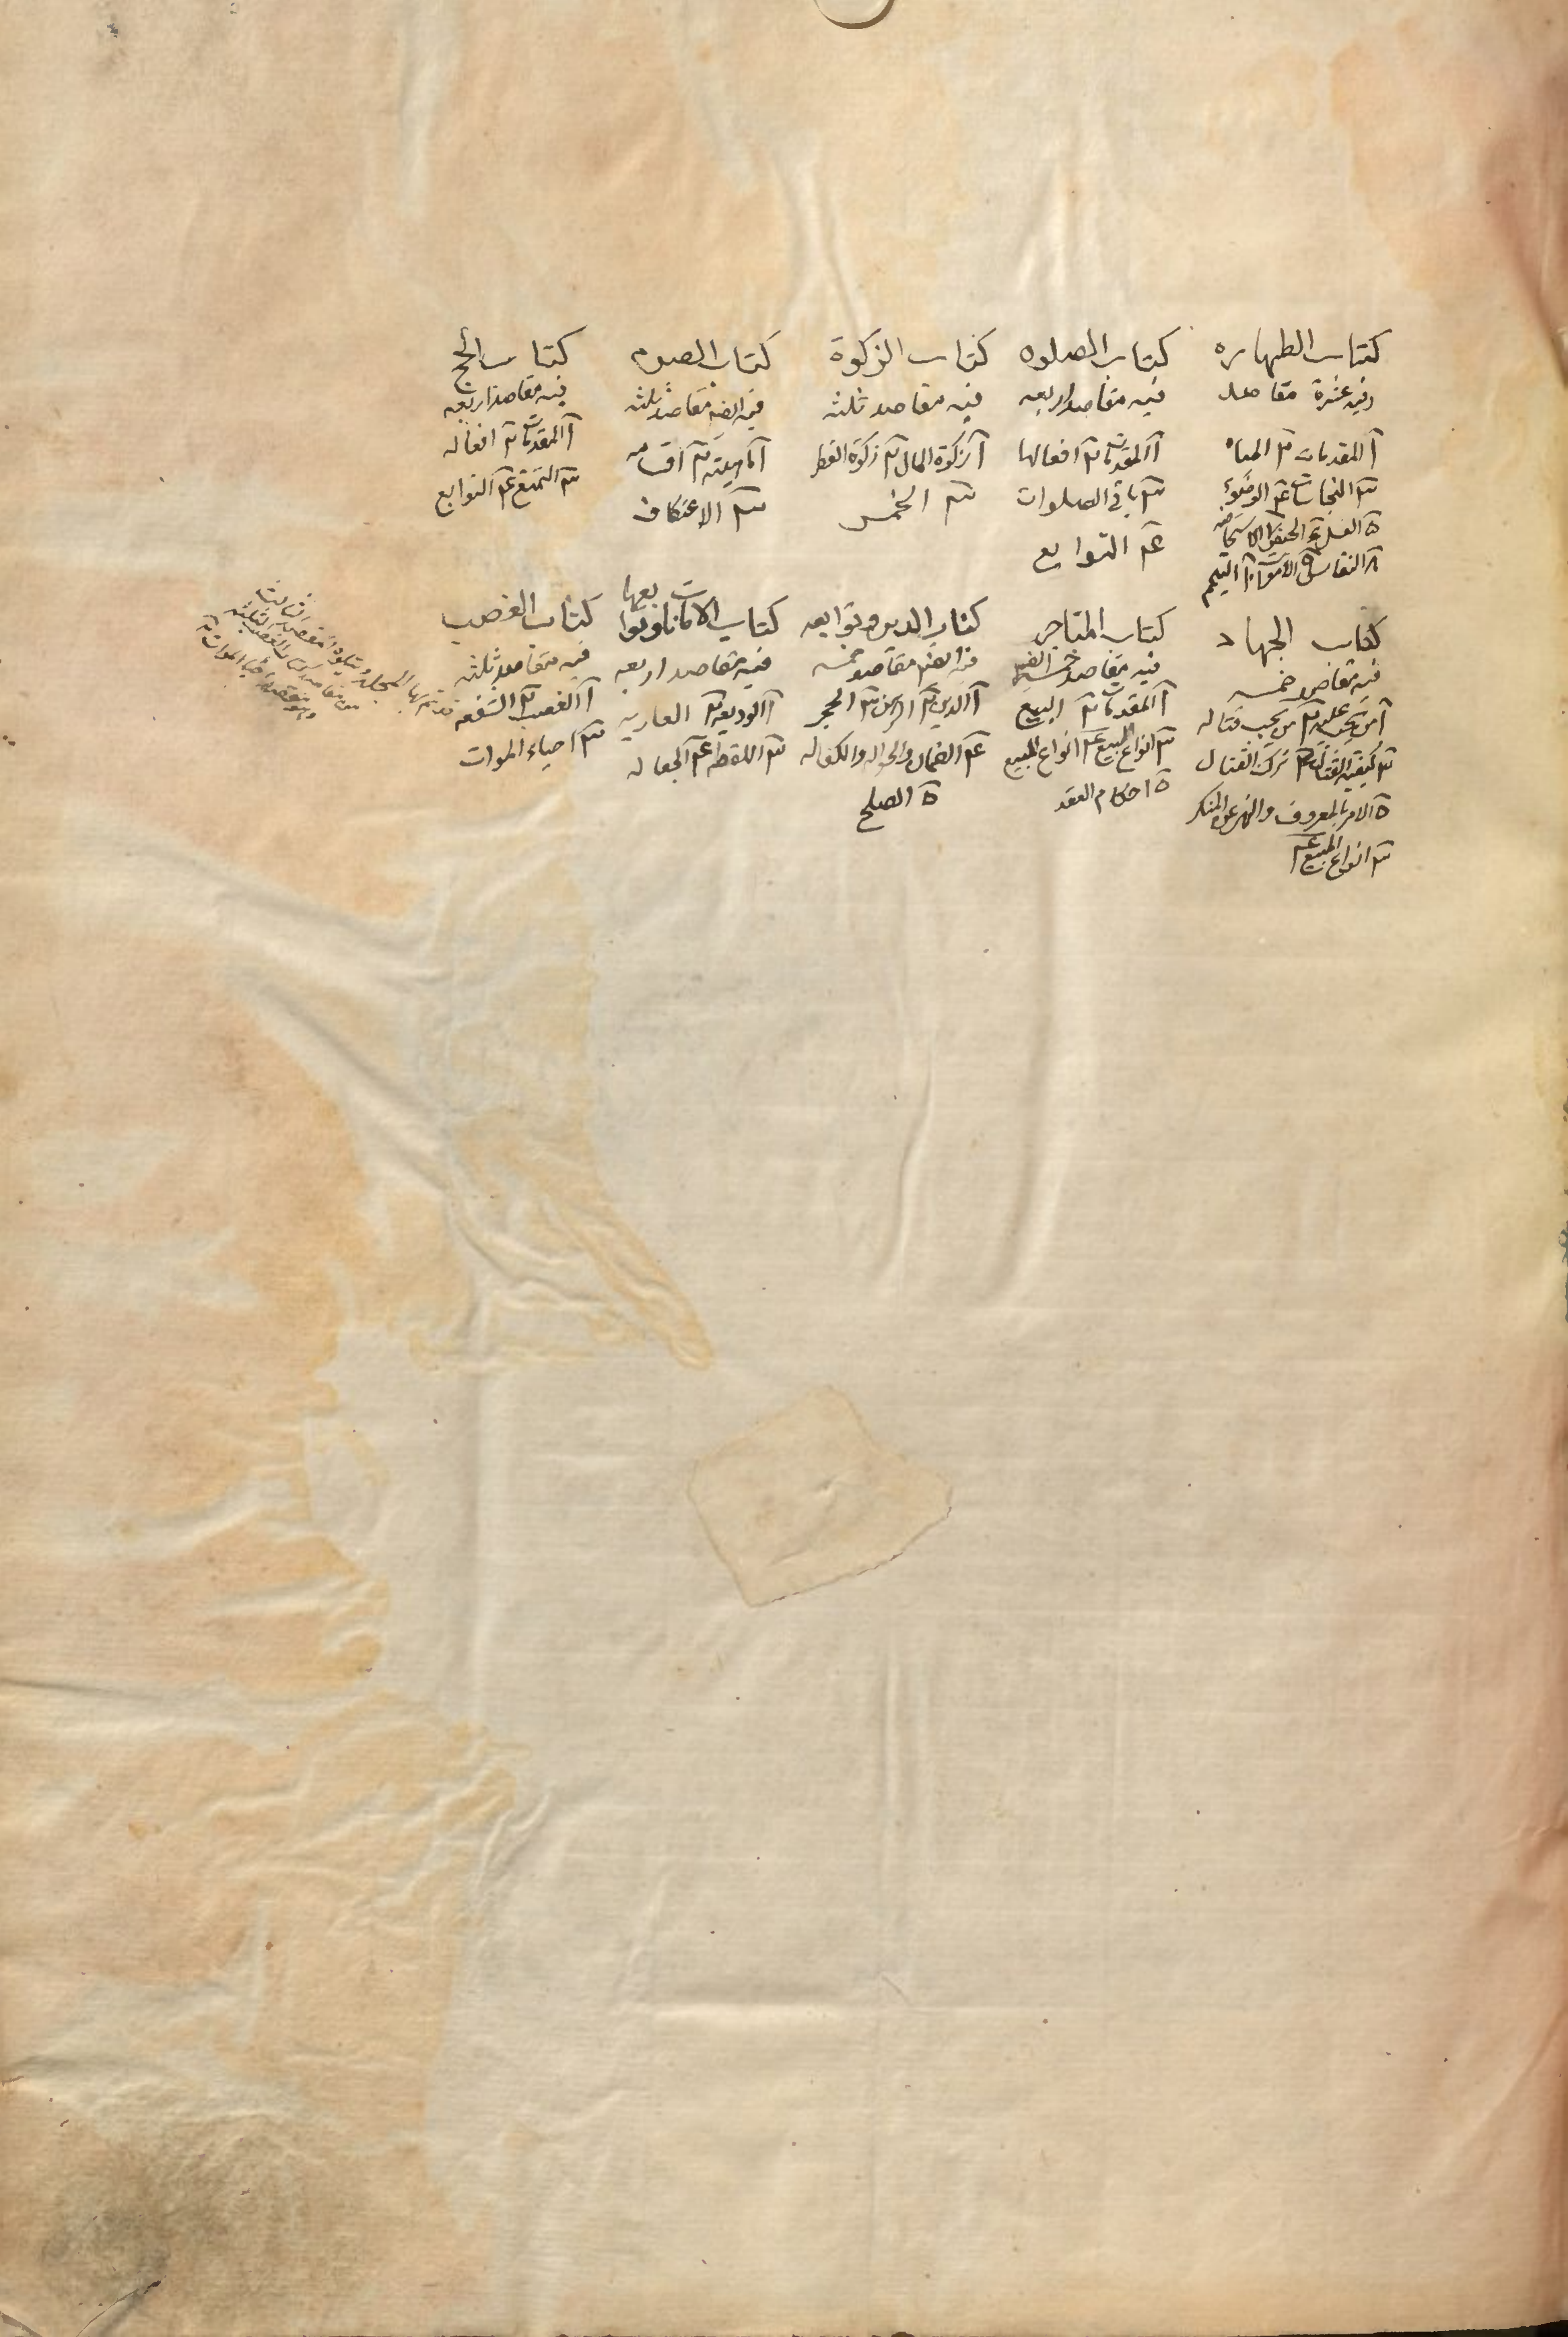 كتاب الطهاره
وفيه عشرة مقاصد
آ المقدمات ٢ المياه
٣ النجاسات ٤ الوضوء
٥ الغسل ٦ الحيض ٧ الاستحاضه
٨ النفاس ٩ الاموات ١٠ التيمم
كتاب الصلوه
فيه مقاصد اربعه
آ المقدمات ٢ افعالها
٣ باقي الصلوات
٤ التوابع
كتاب الزكوة
فيه مقاصد ثلثه
آ زكوة المال ٢ زكوة الفطر
٣ الخمس
كتاب الصوم
فيه ايضا مقاصد ثلثه
آ ماهيته ٢ اقسامه
٣ الاعتكاف
كتاب الحج
فيه مقاصد اربعه
آ المقدمات ٢ افعاله
٣ التمتع ٤ التوابع
كتاب الجهاد
فيه مقاصد خمسه
آ من يجب عليه ٢ من يجب قتاله
٣ كيفيه القتال ٤ ترك القتال
٥ الامر بالمعروف والنهي عن المنكر
٣ انواع المبيع ٤
كتاب المتاجر
فيه مقاصد خمسه ايضا
آ المقدمات ٢ البيع
٣ انواع البيع ٤ انواع المبيع
٥ احكام العقد
كتاب الدين وتوابعه
فيه ايضا مقاصد خمسه
آ الدين ٢ الرهن ٣ الحجر
٤ الضمان والحواله والكفاله
٥ الصلح
كتاب الامانات وتوابعها
فيه مقاصد اربعه
آ الوديعه ٢ العاريه
٣ اللقطه ٤ الجعاله
كتاب الغصب
فيه مقاصد ثلثه
آ الغصب ٢ الشفعه
٣ احياء الموات
المجلد ويتلوه المقصد الثالث
من مقاصد كتاب الغصب الثلثه